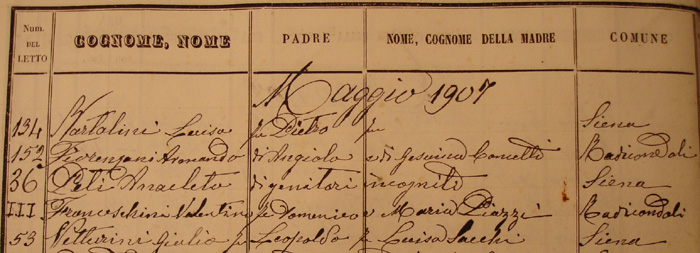 Num. DEL LETTO COGNOME, NOME PADRE NOME, COGNOME DELLA MADRE COMUNE
Maggio 1907
134 Bartolini Luisa fu Pietro fu Siena
152 Fiorenzani Armando di Angiolo e di Gesuina Radicondoli
36 Peti Anacleto di genitori incogniti Siena
III Franceschini Valentino fu Domenico e Maria Piazzi Radicondoli
53 Vetturini Giulio fu Leopoldo fu Luisa Sacchi Siena